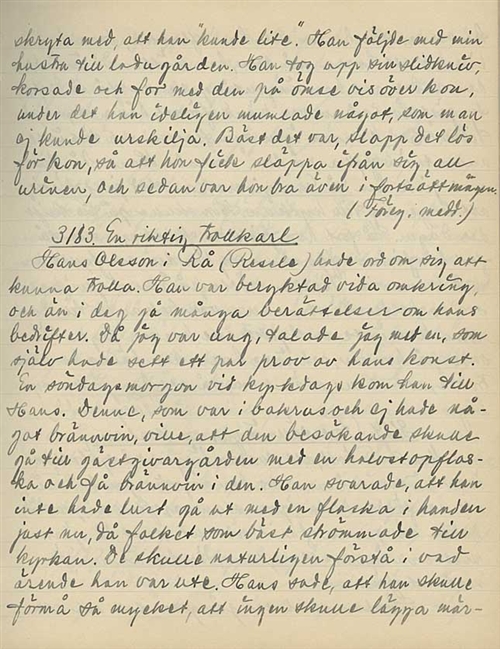 skryta med, att han "kunde lite". Han följde med min
hustru till ladugården. Han tog upp sin slidkniv,
korsade och for med den på ömse vis över kon,
under det han ideligen mumlade något, som man
ej kunde urskilja. Bäst det var, slapp det lös
för kon, så att hon fick släppa ifrån sig all
urinen, och sedan var hon bra även i fortsättningen.
(Föreg. medd.)
3183. En riktig trollkarl
Hans Olsson i Rå (Resele) hade ord om sig att
kunna trolla. Han var beryktad vida omkring,
och än i dag gå många berättelser om hans
bedrifter. Då jag var ung, talade jag med en, som
själv hade sett ett par prov av hans konst.
En söndagsmorgon vid kyrkdags kom han till
Hans. Denne, som var i bakrus och ej hade nå-
got brännvin, ville, att den besökande skulle
gå till gästgivargården med en halvstopflas-
ka och få brännvin i den. Han svarade, att han
inte hade lust gå ut med en flaska i handen
just nu, då folket som bäst strömmade till
kyrkan. De skulle naturligen förstå i vad
ärende han var ute. Hans sade, att han skulle
förmå så mycket, att ingen skulle lägga mär-